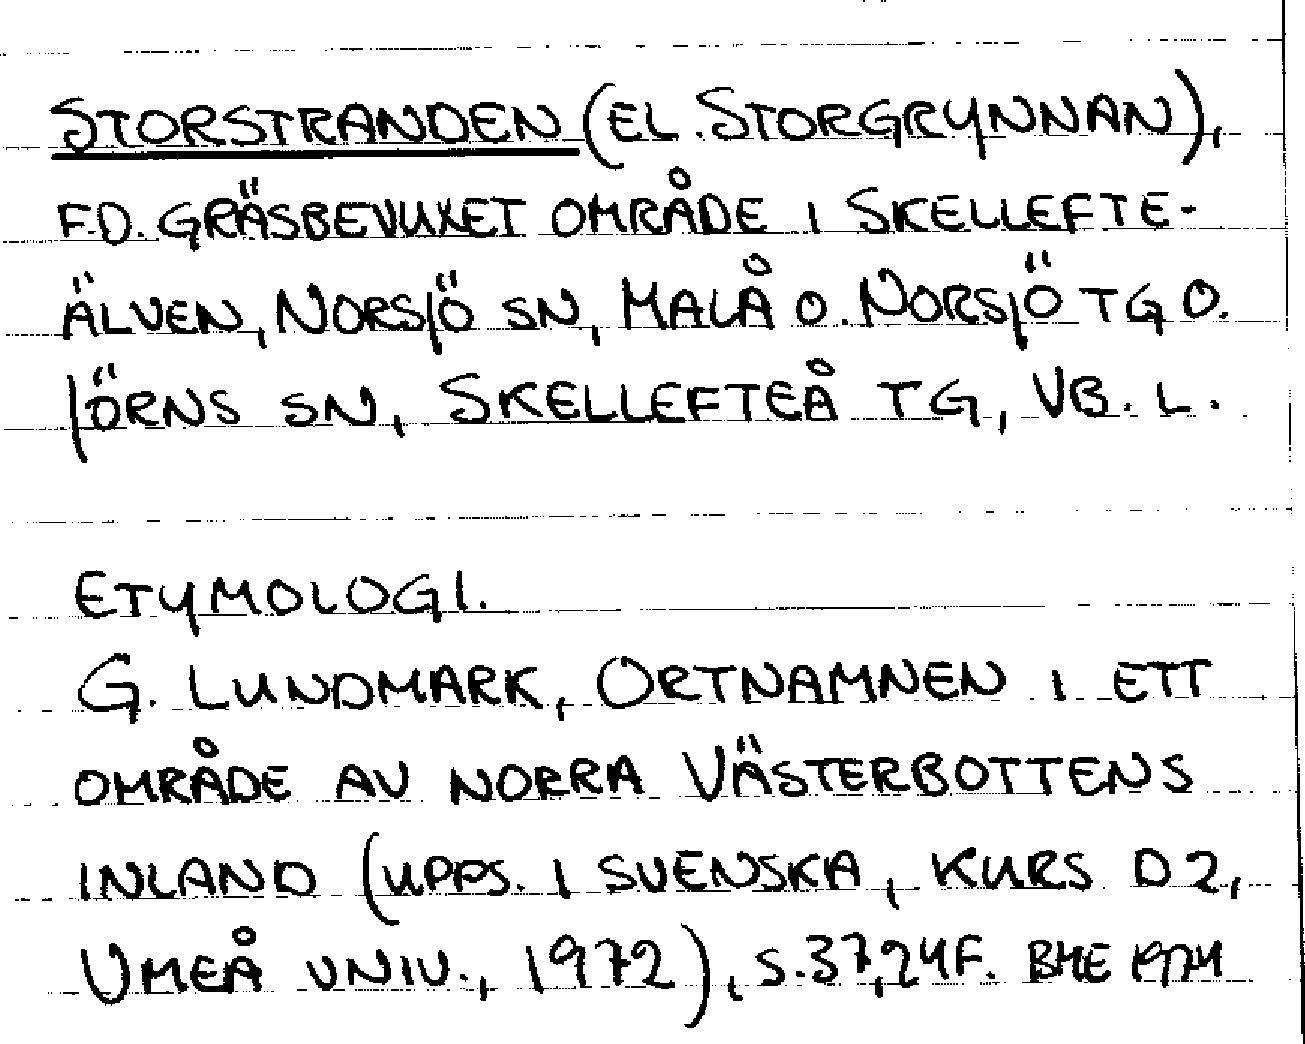 STORSTRANDEN (EL. STORGRYNNAN),
F.D. GRÄSBEVUXET OMRÅDE I SKELLEFTE-
ÄLVEN, NORSJÖ SN, MALÅ O. NORSJÖ TG O.
JÖRNS SN, SKELLEFTEÅ TG, VB. L.
ETYMOLOGI.
G. LUNDMARK, ORTNAMNEN I ETT
OMRÅDE AV NORRA VÄSTERBOTTENS
INLAND (UPPS. I SVENSKA, KURS D2,
UMEÅ UNIV., 1972), S. 37, 24F. BME 1974